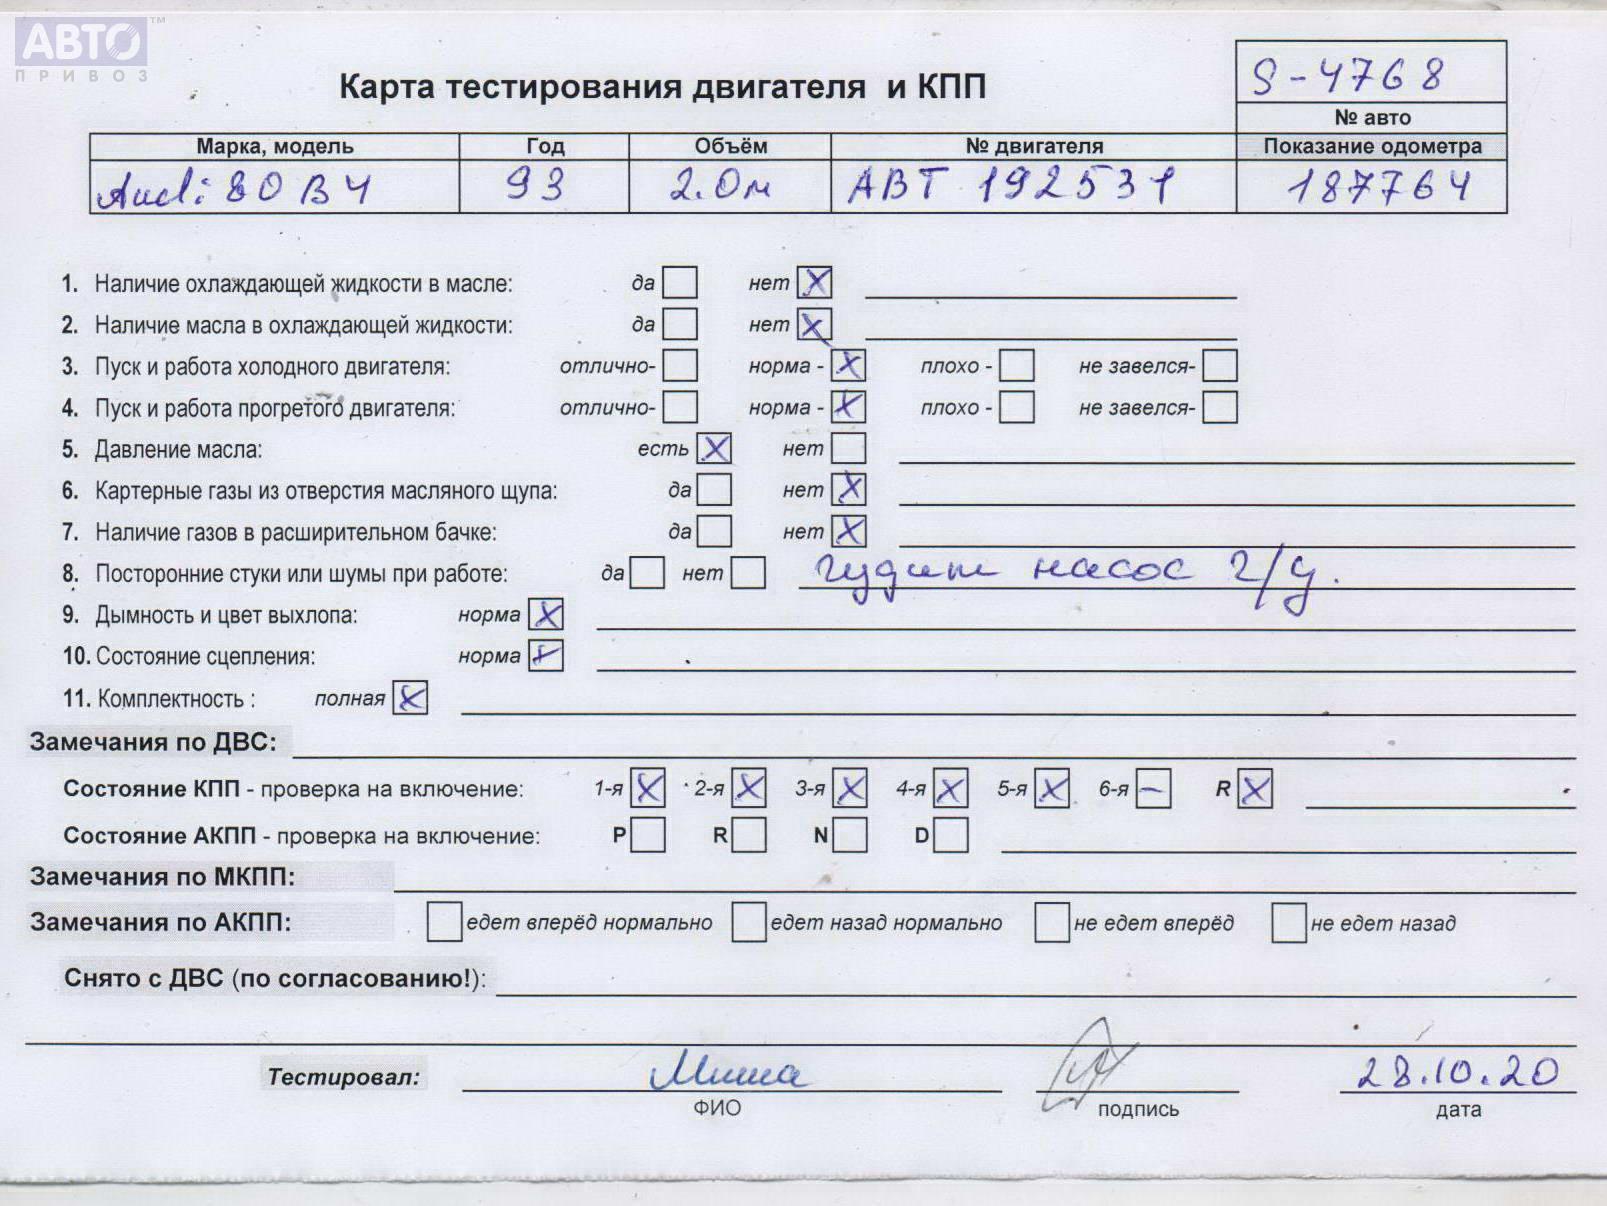 АВТО™
ПРИВОЗ
Карта тестирования двигателя и КПП
S-4768
№ авто
Марка, модель Год Объём № двигателя Показание одометра
Audi 80 B4 93 2.0м ABT 192531 187764
1. Наличие охлаждающей жидкости в масле: да нет X
2. Наличие масла в охлаждающей жидкости: да нет X
3. Пуск и работа холодного двигателя: отлично- норма - X плохо - не завелся-
4. Пуск и работа прогретого двигателя: отлично- норма - X плохо - не завелся-
5. Давление масла: есть X нет
6. Картерные газы из отверстия масляного щупа: да нет X
7. Наличие газов в расширительном бачке: да нет X
8. Посторонние стуки или шумы при работе: да нет гудит насос г/у.
9. Дымность и цвет выхлопа: норма X
10. Состояние сцепления: норма X
11. Комплектность : полная X
Замечания по ДВС:
Состояние КПП - проверка на включение: 1-я X 2-я X 3-я X 4-я X 5-я X 6-я – R X
Состояние АКПП - проверка на включение: P R N D
Замечания по МКПП:
Замечания по АКПП: едет вперёд нормально едет назад нормально не едет вперёд не едет назад
Снято с ДВС (по согласованию!):
Тестировал: Миша 28.10.20
ФИО подпись дата